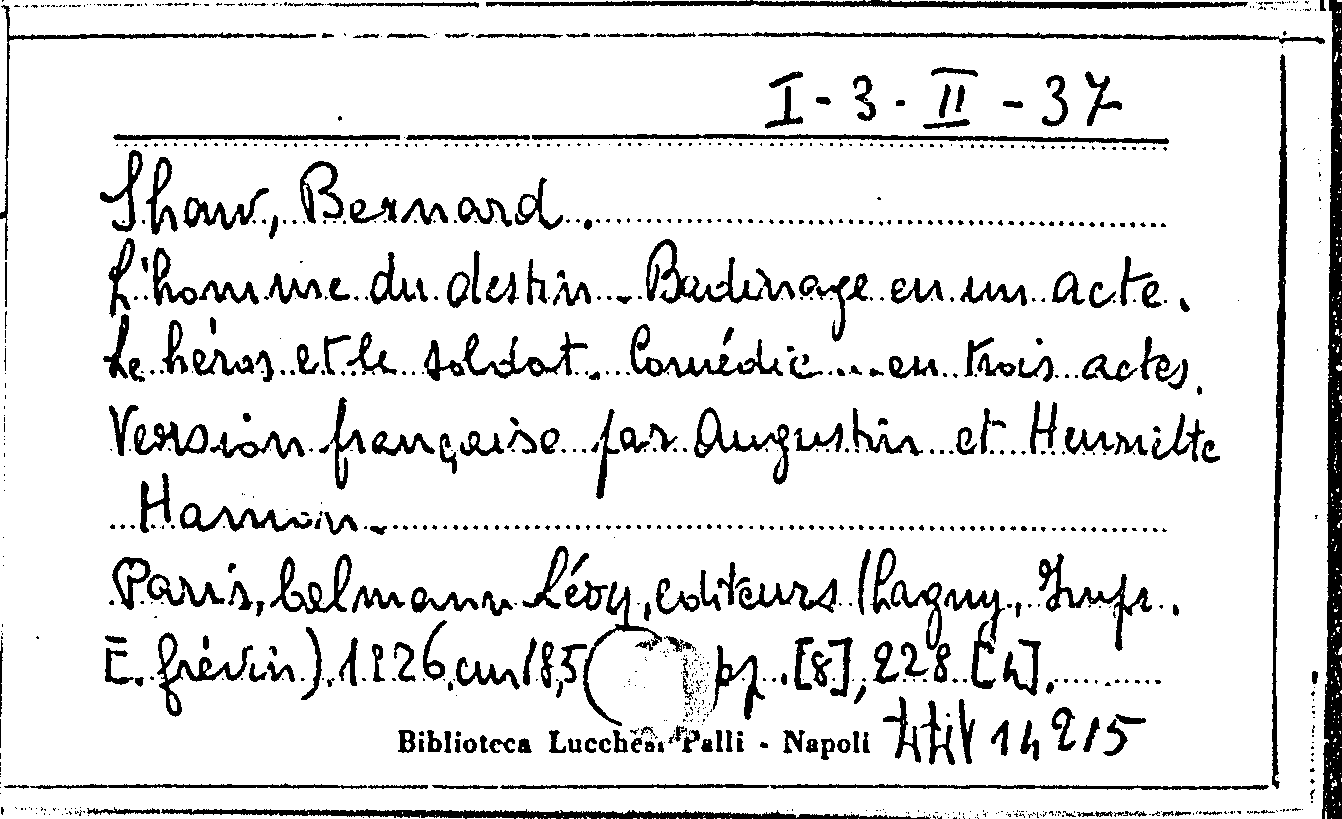 I-3-II-37
Shaw, Bernard.
L'homme du destin. Badinage en un acte.
Le héros et le soldat. Comédie... en trois actes.
Version française par Augustin et Henriette
Hamon.
Paris, Calmann Lévy, editeurs (Lagny, Impr.
E. frévin). 1926. cm 18,5 pp. [8], 228 [4].
Biblioteca Lucchesi Palli - Napoli 14215